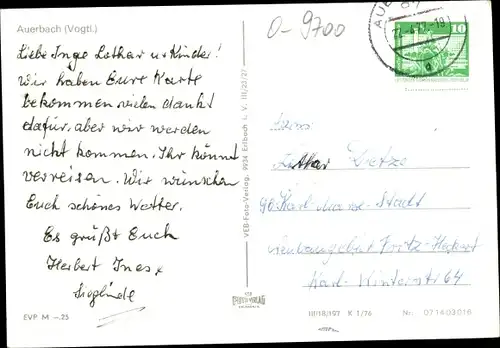 Auerbach (Vogtl.)
0-9700
Liebe Inge Lothar u. Kinder!
Wir haben Eure Karte
bekommen vielen dankt
dafür, aber wir werden
nicht kommen. Ihr könnt
verreisen. Wir wünschen
Euch schönes Wetter.
Es grüßt Euch
Herbert Ines
Sieglinde
EVP M -.25
VEB-Foto-Verlag, 9924 Erlbach i. V. III/23/27
10
Lothar Dietze
90 Karl-Marx-Stadt
Neubaugebiet Fritz-Heckert
Karl-Winterstr 64
III/18/197 K 1/76 Nr. 071403016